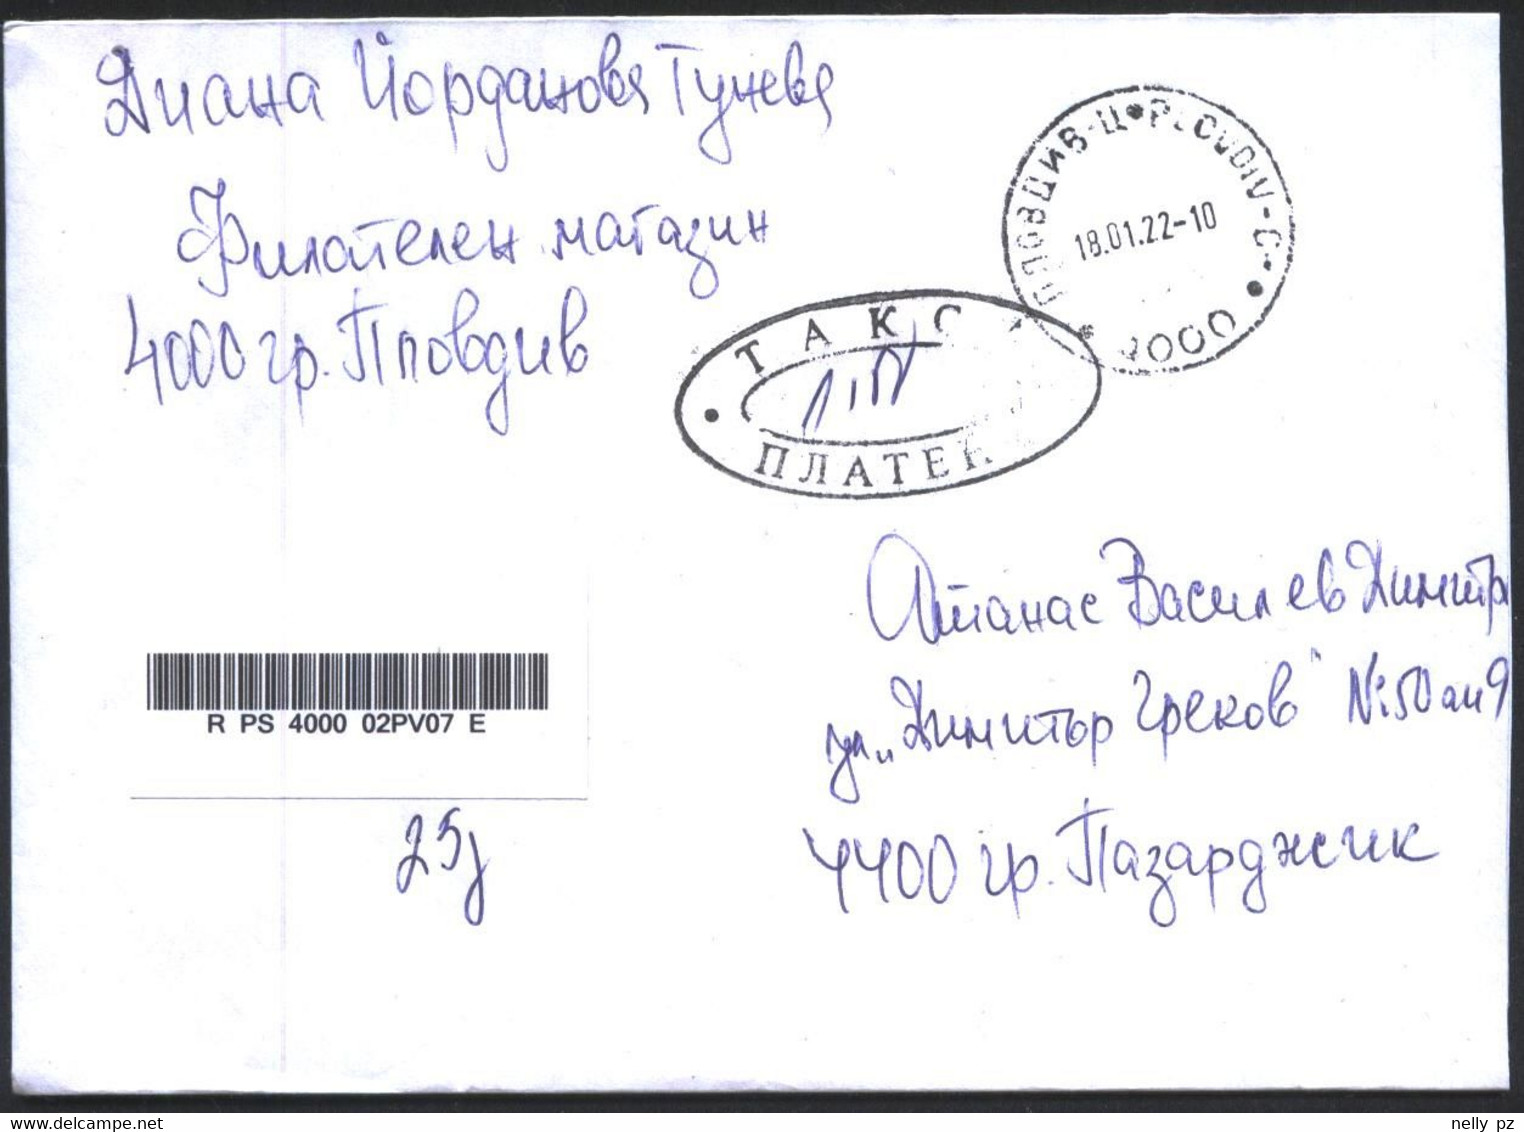 Диана Йорданова Гунева
Филателен магазин
4000 гр. Пловдив
ПЛОВДИВ-Ц • PLOVDIV-C •
18.01.22-10
4000
ТАКСА
ПЛАТЕНА
Атанас Василев Димитр
ул. „Димитър Греков" №50 ап 9
4400 гр. Пазарджик
R PS 4000 02PV07 E
25
nelly pz